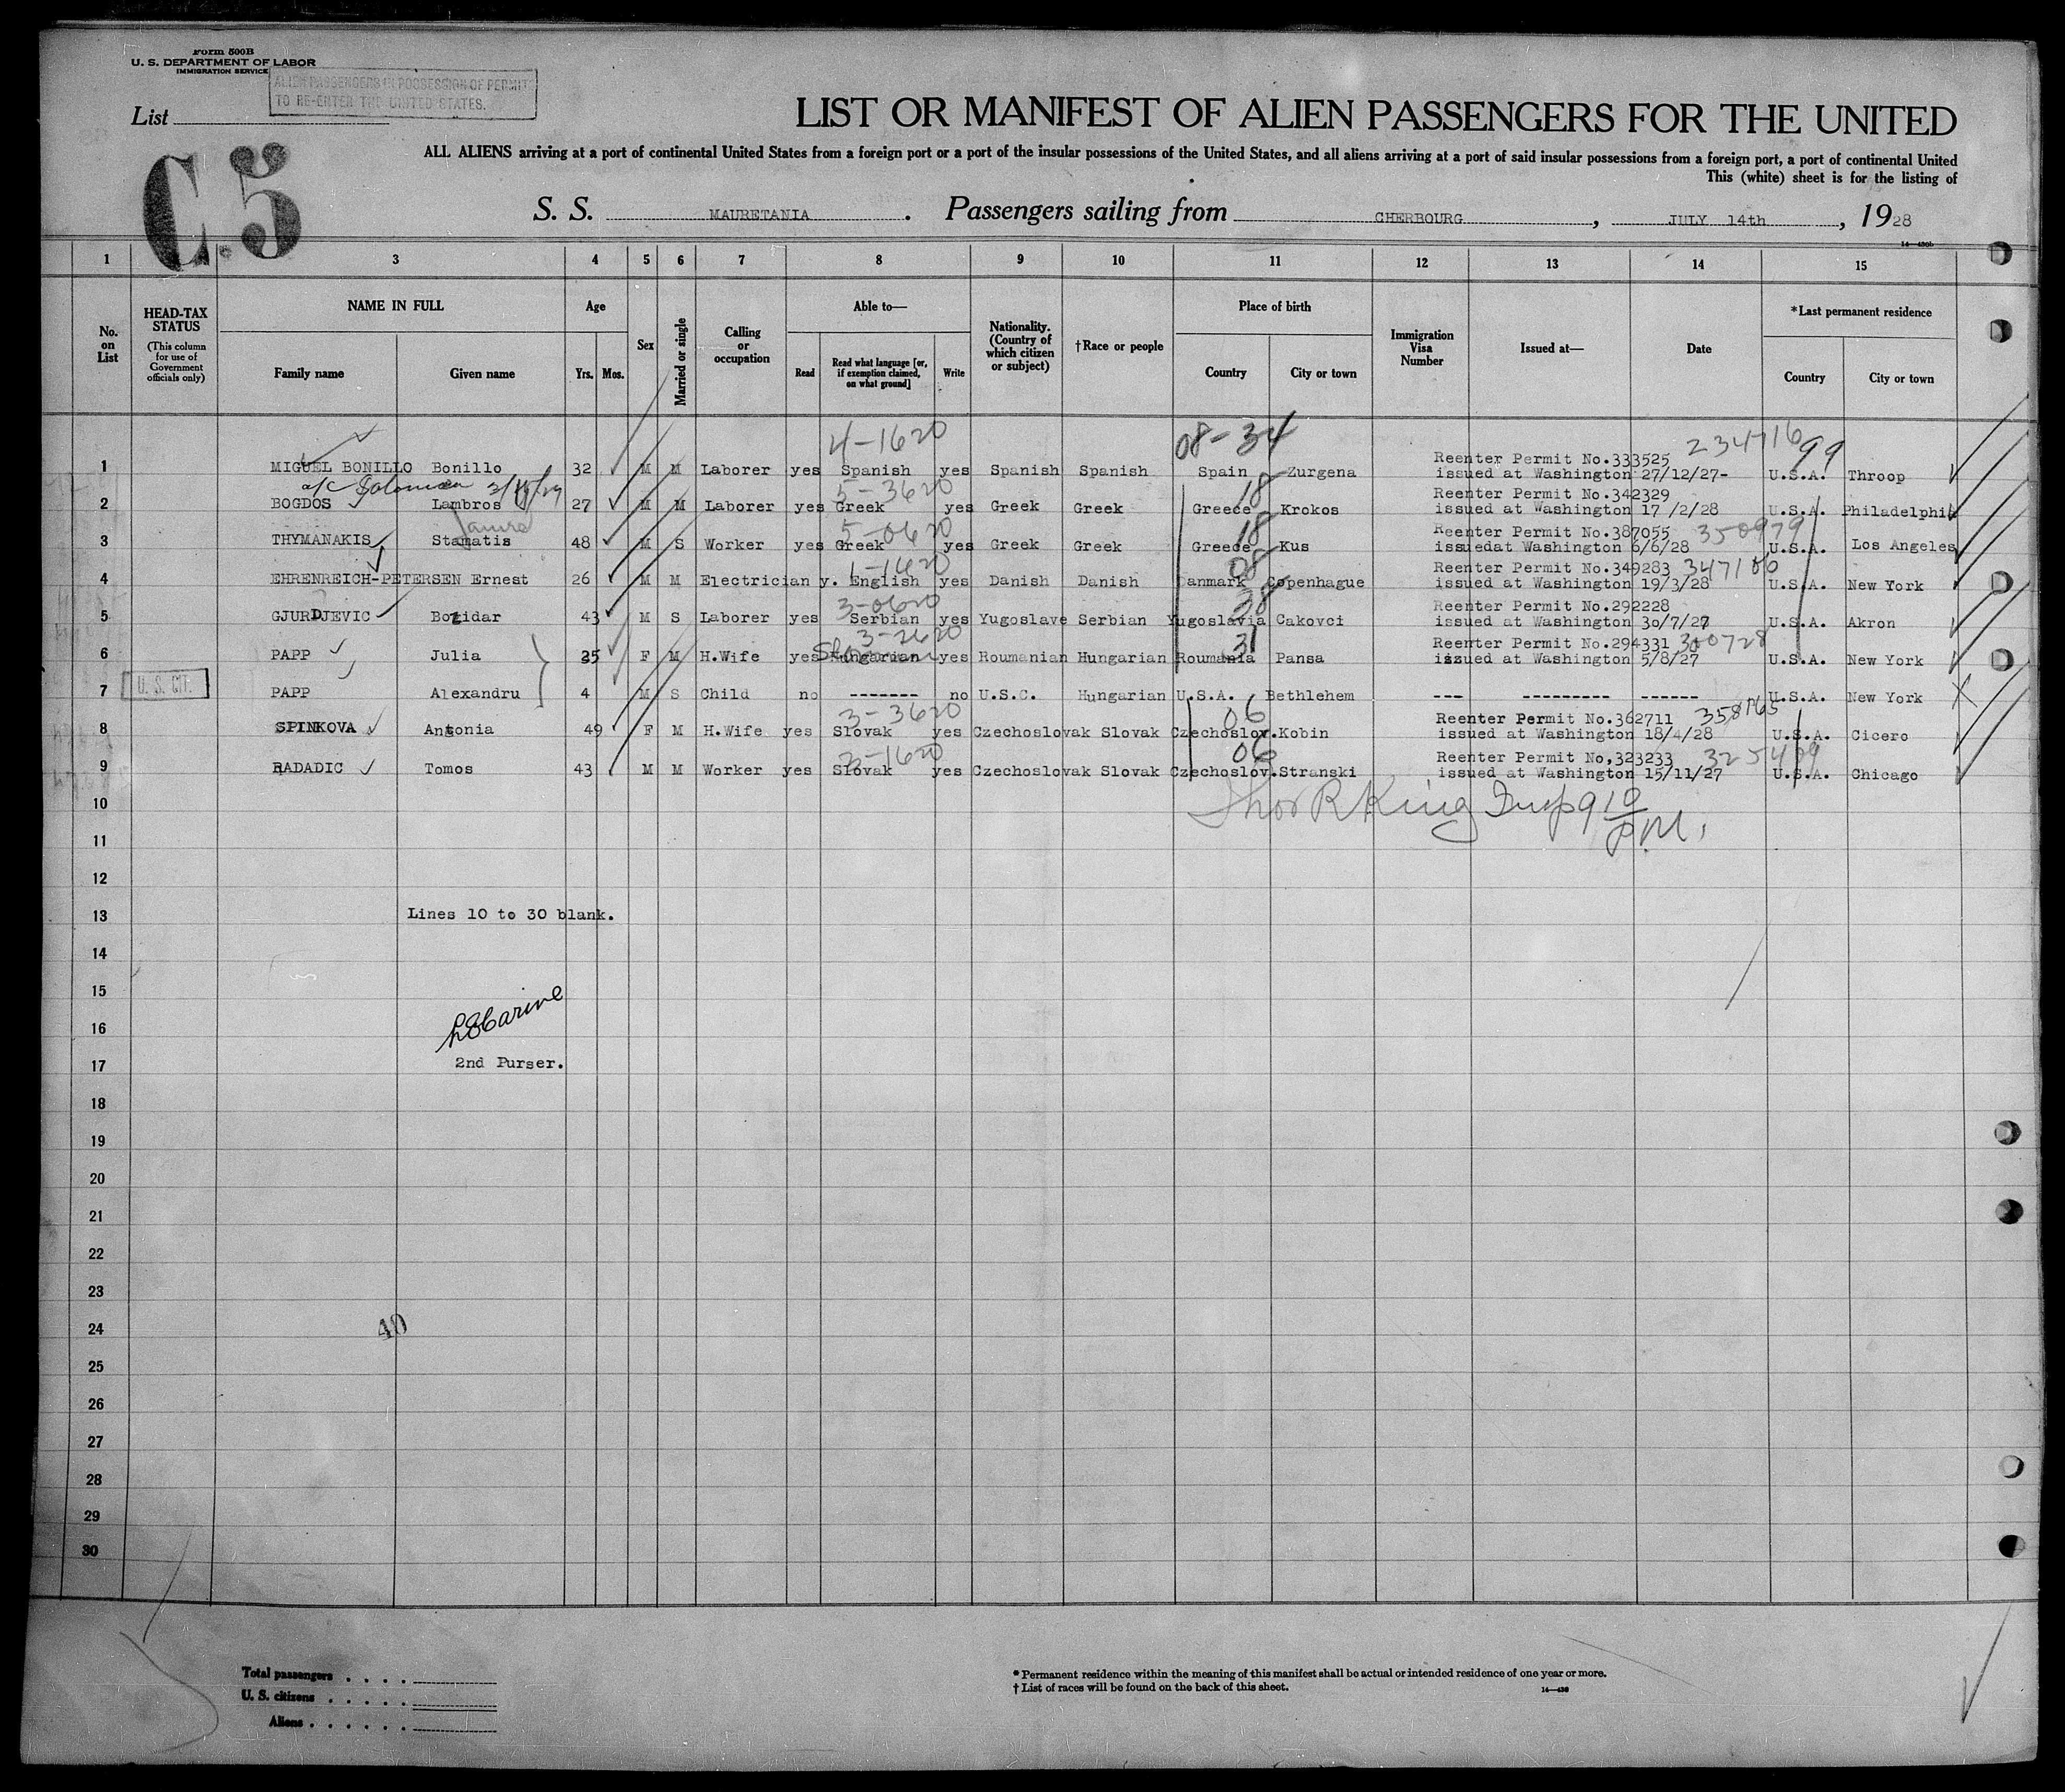 Form 500B
U. S. DEPARTMENT OF LABOR
IMMIGRATION SERVICE
ALIEN PASSENGERS IN POSSESSION OF PERMIT
TO RE-ENTER THE UNITED STATES.
List
C.5
LIST OR MANIFEST OF ALIEN PASSENGERS FOR THE UNITED
ALL ALIENS arriving at a port of continental United States from a foreign port or a port of the insular possessions of the United States, and all aliens arriving at a port of said insular possessions from a foreign port, a port of continental United
This (white) sheet is for the listing of
S. S. MAURETANIA . Passengers sailing from CHERBOURG , JULY 14th , 1928
1 3 4 5 6 7 8 9 10 11 12 13 14 15
No. on List HEAD-TAX STATUS (This column for use of Government officials only) NAME IN FULL Family name Given name Age Yrs. Mos. Sex Married or single Calling or occupation Able to— Read Read what language [or, if exemption claimed, on what ground] Write Nationality. (Country of which citizen or subject) †Race or people Place of birth Country City or town Immigration Visa Number Issued at— Date *Last permanent residence Country City or town
4-1620 08-34 234716 99
Reenter Permit No.333525
1 MIGUEL BONILLO Bonillo 32 M M Laborer yes Spanish yes Spanish Spanish Spain Zurgena issued at Washington 27/12/27- U.S.A. Throop
5-3620 18 Reenter Permit No.342329
2 BOGDOS Lambros 27 M M Laborer yes Greek yes Greek Greek Greece Krokos issued at Washington 17 /2/28 U.S.A. Philadelphia
5-0620 18 Reenter Permit No.387055 350979
3 THYMANAKIS Stamatis 48 M S Worker yes Greek yes Greek Greek Greece Kus issuedat Washington 6/6/28 U.S.A. Los Angeles
1-1620 08 Reenter Permit No.349283 347180
4 EHRENREICH-PETERSEN Ernest 26 M M Electrician y. English yes Danish Danish Danmark Copenhague issued at Washington 19/3/28 U.S.A. New York
3-0620 38 Reenter Permit No.292228
5 GJURDJEVIC Bozidar 43 M S Laborer yes Serbian yes Yugoslave Serbian Yugoslavia Cakovci issued at Washington 30/7/27 U.S.A. Akron
3-2620 31 Reenter Permit No.294331 300728
6 PAPP Julia 35 F M H.Wife yes Hungarian yes Roumanian Hungarian Roumania Pansa issued at Washington 5/8/27 U.S.A. New York
U. S. CIT.
7 PAPP Alexandru 4 M S Child no ------- no U.S.C. Hungarian U.S.A. Bethlehem --- --------- ------ U.S.A. New York
3-3620 06 Reenter Permit No.362711
8 SPINKOVA Antonia 49 F M H.Wife yes Slovak yes Czechoslovak Slovak Czechoslov.Kobin issued at Washington 18/4/28 U.S.A. Cicero
3-1620 06 Reenter Permit No,323233 325409
9 RADADIC Tomos 43 M M Worker yes Slovak yes Czechoslovak Slovak Czechoslov.Stranski issued at Washington 15/11/27 U.S.A. Chicago
10
R King Insp 9 10 P.M.
11
12
13 Lines 10 to 30 blank.
14
15
16
17 2nd Purser.
18
19
20
21
22
23
24 40
25
26
27
28
29
30
Total passengers . . . .
U. S. citizens . . . . .
Aliens . . . . . .
* Permanent residence within the meaning of this manifest shall be actual or intended residence of one year or more.
† List of races will be found on the back of this sheet.